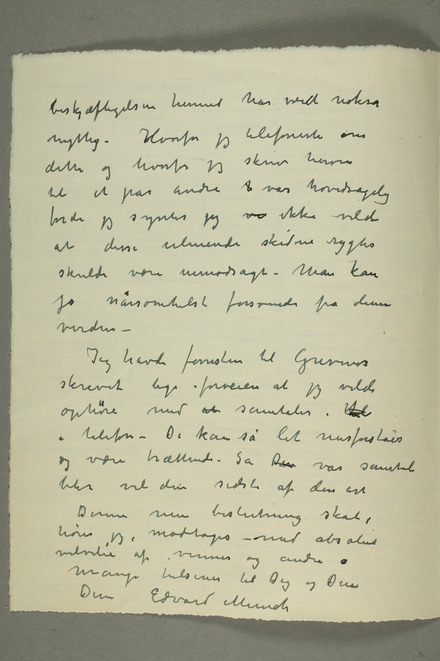 beskjæftigelsen hermed har været nokså
nyttig – Hvorfor jeg telefonerte om
dette og hvorfor jeg skrev herom
til et par andre var hovedsagelig
fordi jeg syntes jeg ikke vilde
at disse ulmende skidne rygter
skulde være uimodsagt – Man kan
jo nårsomhelst forsvinde fra denne
verden –
Jeg havde forresten til Grevenes
skrevet lige i forveien at jeg vilde
ophøre med samtaler
i telefon – De kan så let misforståes
og være trættende. Så var samtale
blev vel den sidste af den art
Denne min beslutning skal,
hører jeg, modtages med absolut
velvilie af venner og andre
Mange hilsener til Dig og Dine
Din Edvard Munch